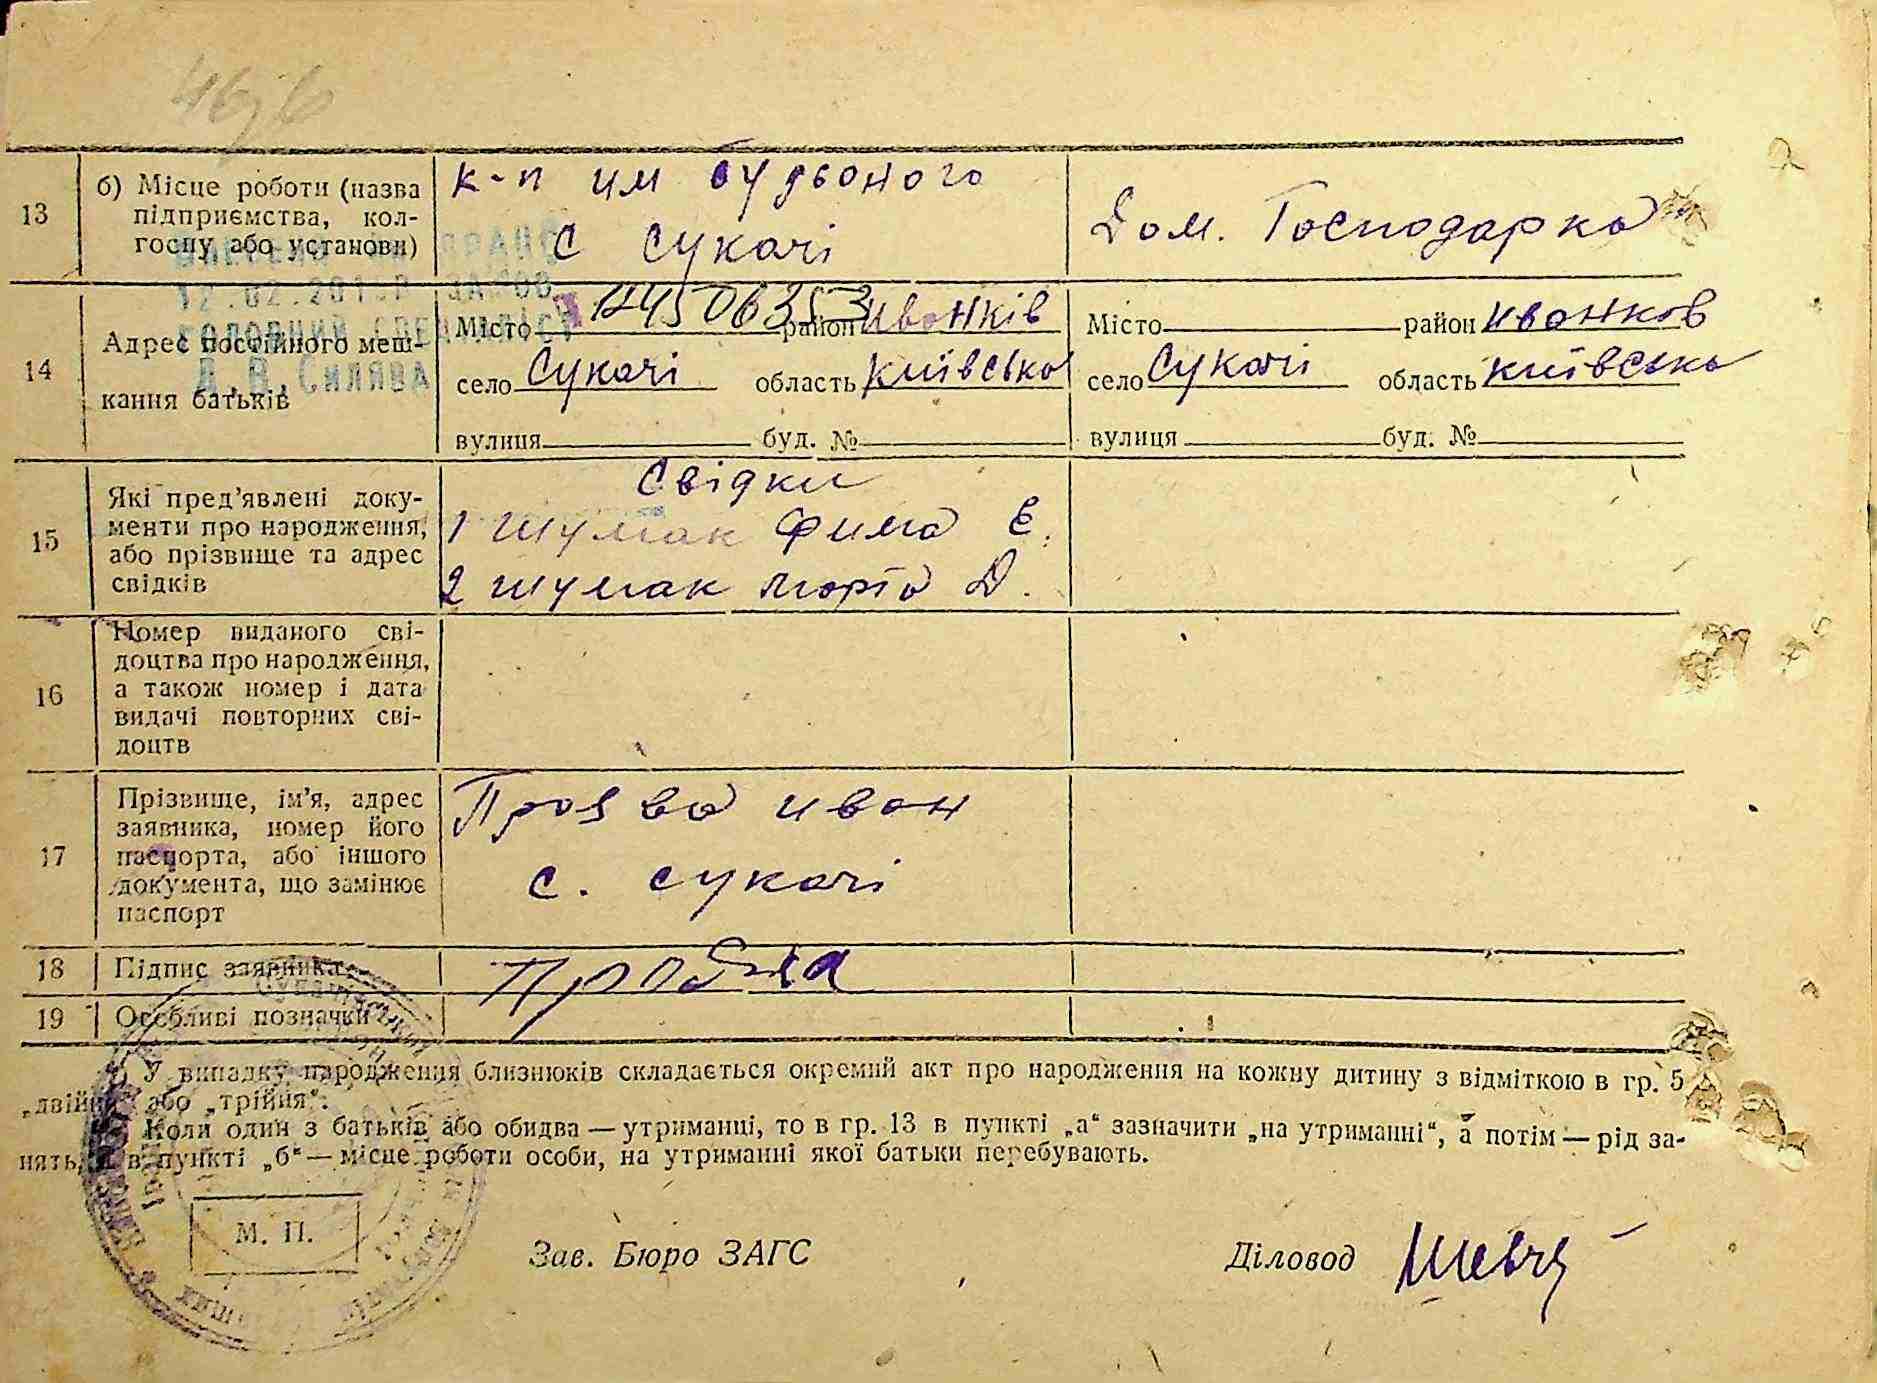 46
13
б) Місце роботи (назва
підприємства, кол-
госпу або установи)
к-п им будьоного
с сукачі
Дом. Господарка
14
Адрес постійного меш-
кання батьків
Місто район Иванків
село Сукачі область Київська
вулиця буд. №
Місто район Иванков
село Сукачі область Київська
вулиця буд. №
12.02.201
ГОЛОВНИЙ СПЕЦІАЛІСТ
Д.В. СИЛЯВА
15
Які пред’явлені доку-
менти про народження,
або прізвище та адрес
свідків
Свідки
1 Шумак Фима Є.
2 Шумак Марія Д.
16
Номер виданого сві-
доцтва про народження,
а також номер і дата
видачі повторних сві-
доцтв
17
Прізвище, ім’я, адрес
заявника, номер його
паспорта, або іншого
документа, що замінює
паспорт
Иван
с. сукачі
18
Підпис заявника
19
Особливі позначки
У випадку народження близнюків складається окремий акт про народження на кожну дитину з відміткою в гр. 5
„двійня“ або „трійня“.
Коли один з батьків або обидва — утриманці, то в гр. 13 в пункті „а“ зазначити „на утриманні“, а потім — рід за-
нять, а в пункті „б“ — місце роботи особи, на утриманні якої батьки перебувають.
М. П.
Зав. Бюро ЗАГС
Діловод